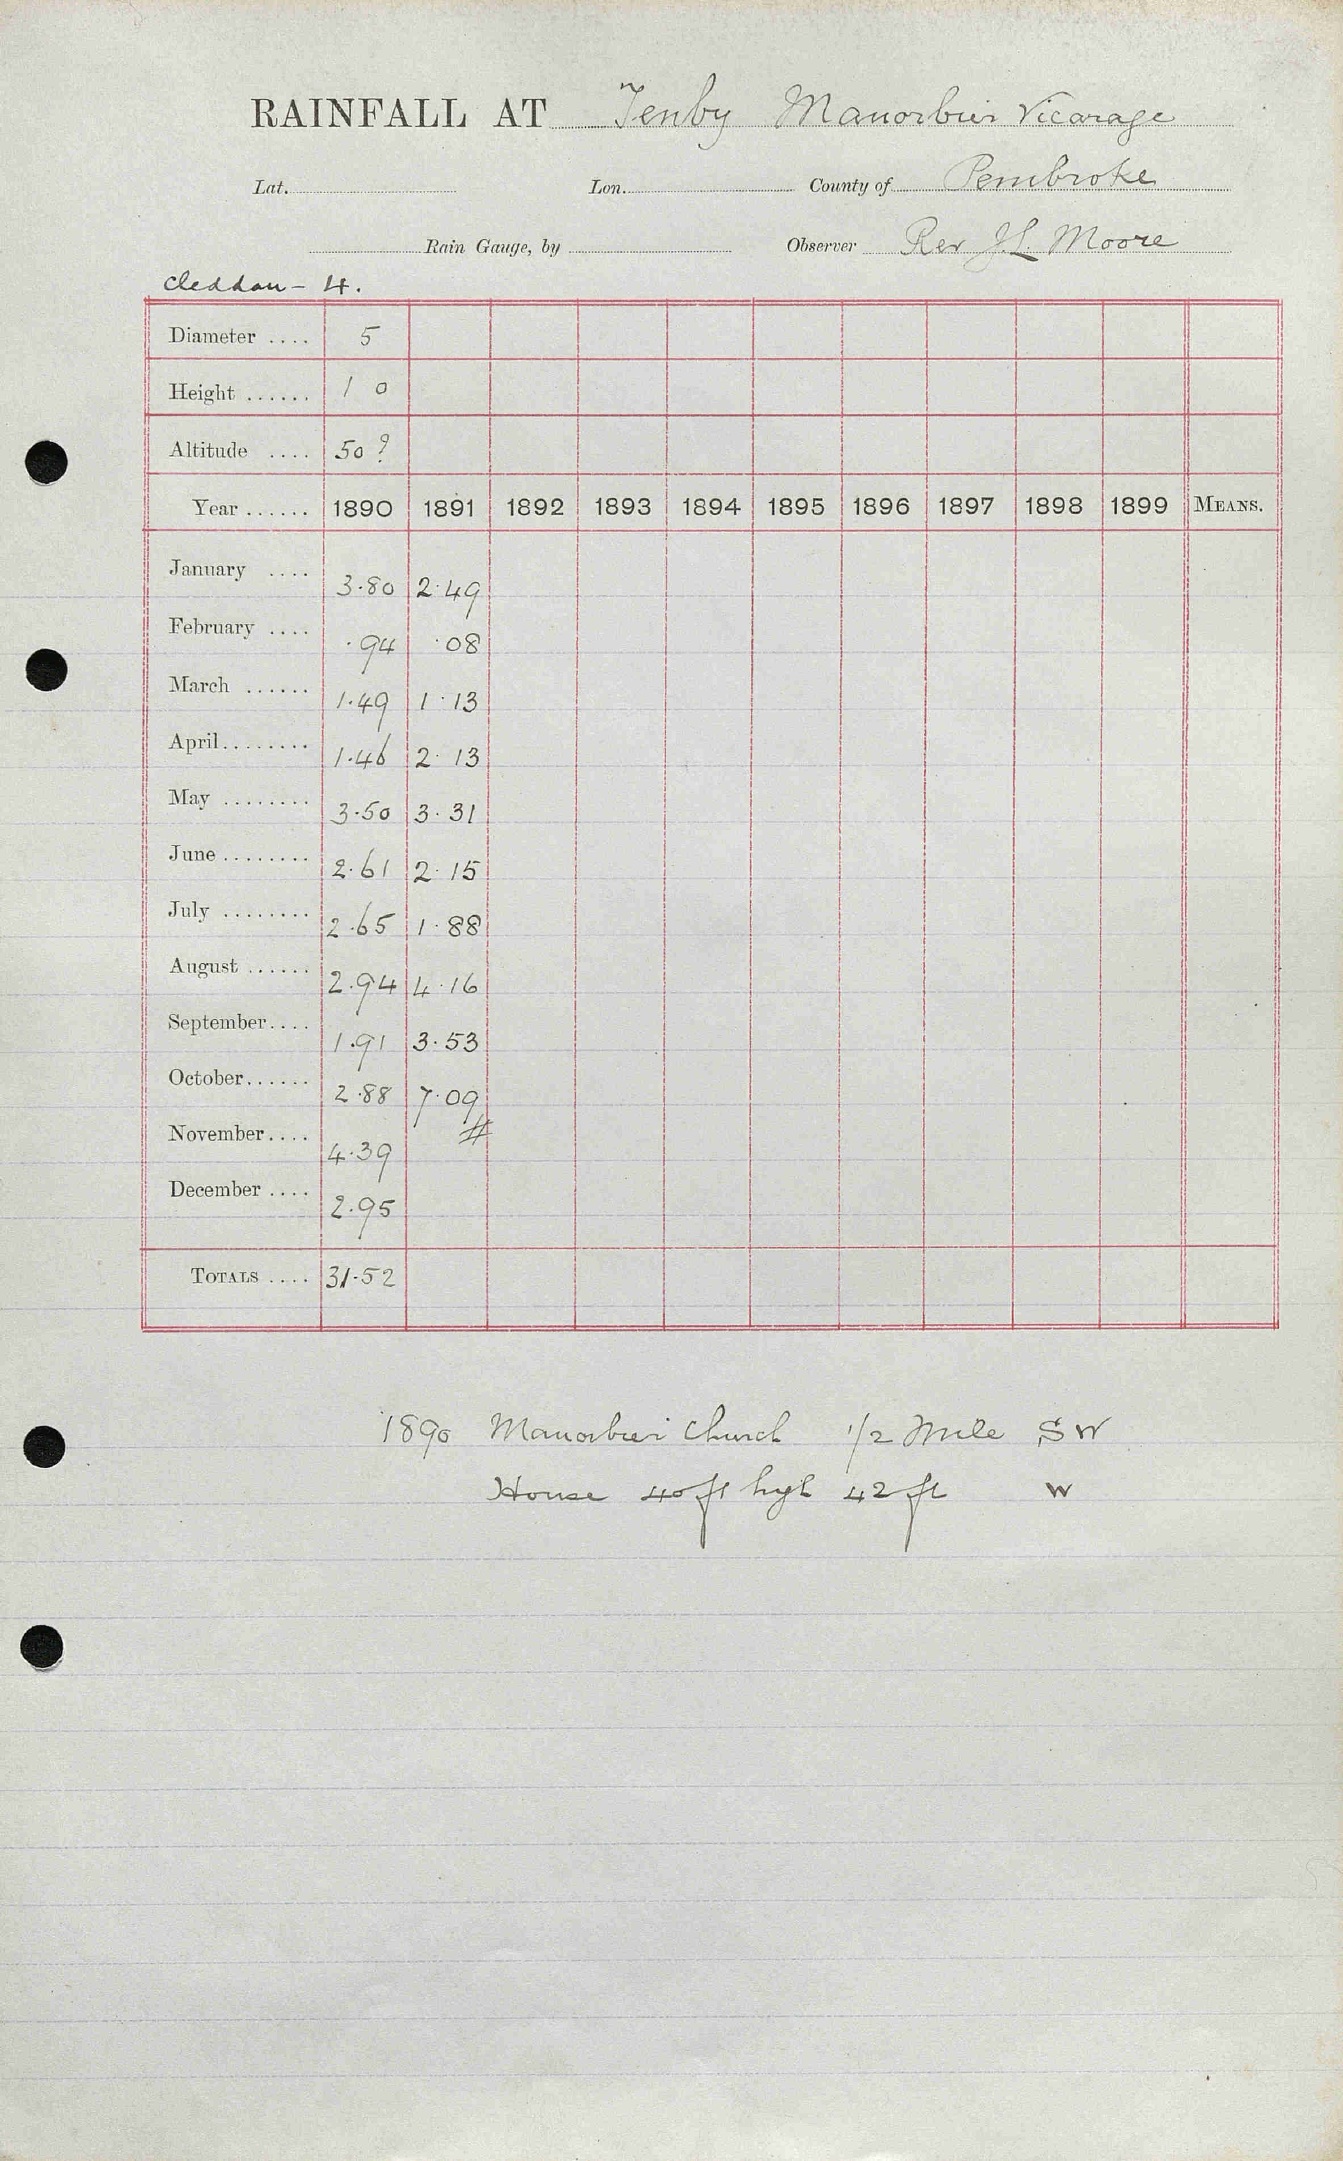 RAINFALL AT Tenby Manorbier Vicarage
Lat. Lon. County of Pembroke
Rain Gauge, by Observer Rev J.L. Moore
Cleddau - 4.
Diameter .... 5
Height ...... 1 0
Altitude .... 50?
Year ...... 1890 1891 1892 1893 1894 1895 1896 1897 1898 1899 MEANS.
January .... 3.80 2.49
February .... .94 .08
March ...... 1.49 1.13
April........ 1.46 2.13
May ........ 3.50 3.31
June ........ 2.61 2.15
July ........ 2.65 1.88
August ...... 2.94 4.16
September.... 1.91 3.53
October...... 2.88 7.09
November.... 4.39 #
December .... 2.95
TOTALS .... 31.52
1890 Manorbier Church 1/2 Mile SW
House 40 ft high 42 ft W